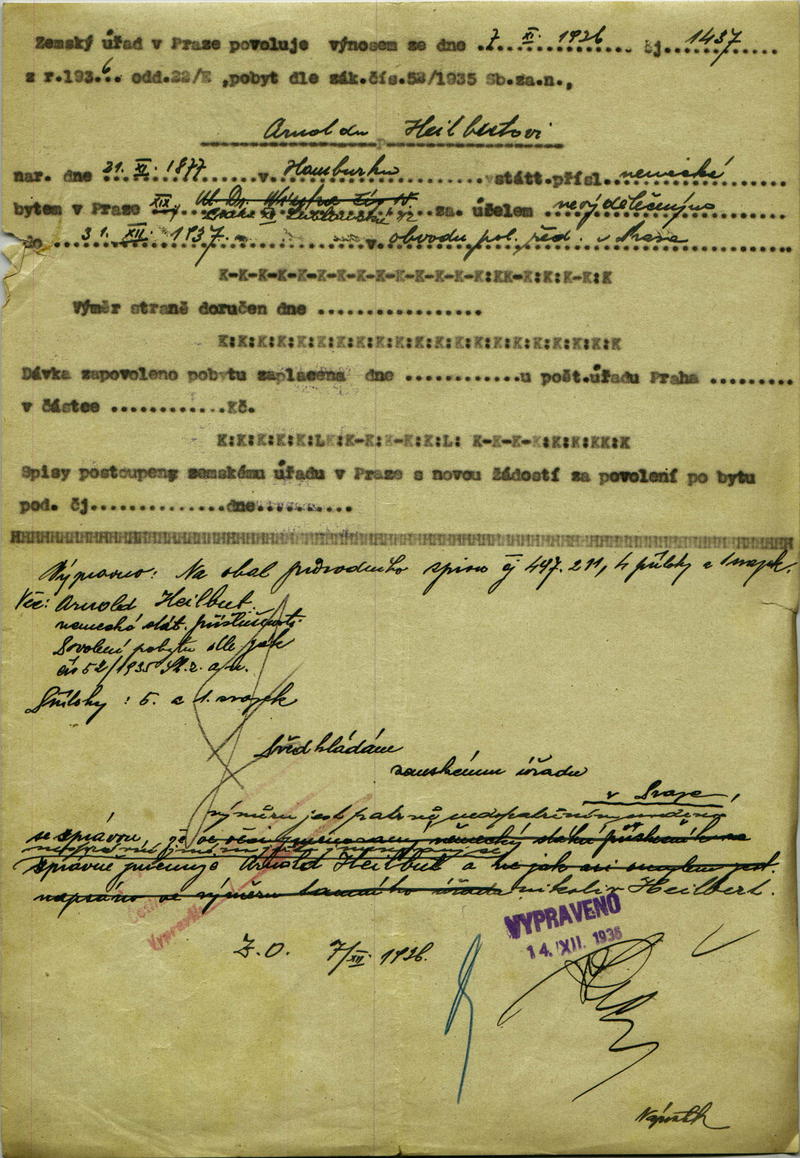 Zemský úřad v Praze povoluje výnosem ze dne 7 XI. 1936 čj 1437
z r.1936 odd.22/E ,pobyt dle zák.čís.52/1935 Sb.za.n.,
Arnoldu Heilbutovi
nar. dne 21. XI. 1877 v Hamburku státt.přísl německé
bytem v Praze XIX, za účelem nevýdělečným
do 31. XII. 1937. v obvodu pol. řed. v Praze
K-K-K-K-K-K-K-K-K-K-K-K-K:KK-K:K:K-K:K
Výměr straně doručen dne .................
K:K:K:K:K:K:K:K:K:K:K:K:K:K:K:K:K:K:K:K:K
Dávka zapovoleno pobytu zaplacena dne ............u pošt.úřadu Praha .........
v částce ............Kč.
K:K:K:K:K:LK:K-K:K-K:K:L: K-K-K-K:K:K:KK:K
Spisy postoupeny zemskému úřadu v Praze s novou žádostí za povolení po bytu
pod. čj..............dne..........
Výpravno: Na obal průvodního spisu čj 497.211, 4 přílohy a 1 svazek.
Věc: Arnold Heilbut.
německá stát. příslušnost.
Povolení pobytu dle zák
čís 52/1935 Sb. z. a n.
Přílohy : 5. a 1. svazek
Předkládám
zemskému úřadu
v Praze,
výměru jest patrně nedopatřením
se zprávou, že
správně jmenuje Arnold Heilbut a
výměru úřadu nikoliv Heilbert.
Z. O. 7/XII 1936.
VYPRAVENO
14. XII. 1936